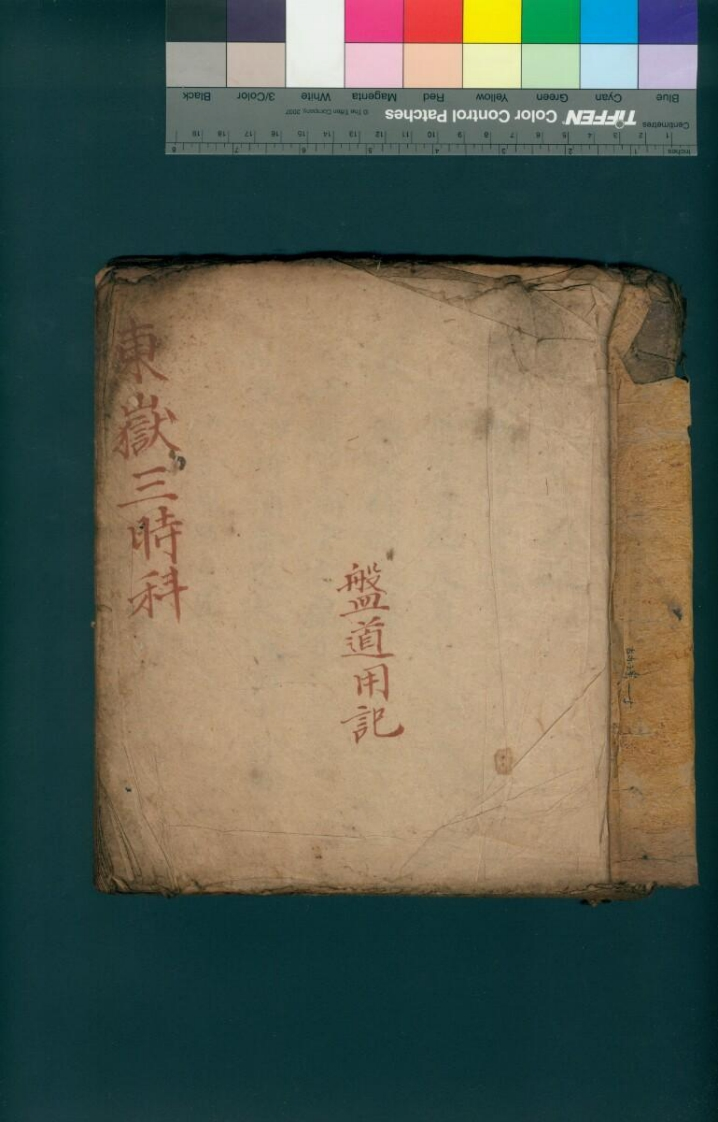 Blue Cyan Green Yellow Red Magenta White 3/Color Black
TIFFEN Color Control Patches
© The Tiffen Company, 2007
Centimetres
1 2 3 4 5 6 7 8 9 10 11 12 13 14 15 16 17 18 19
Inches
1 2 3 4 5 6 7 8
盤道用記
東嶽三時科